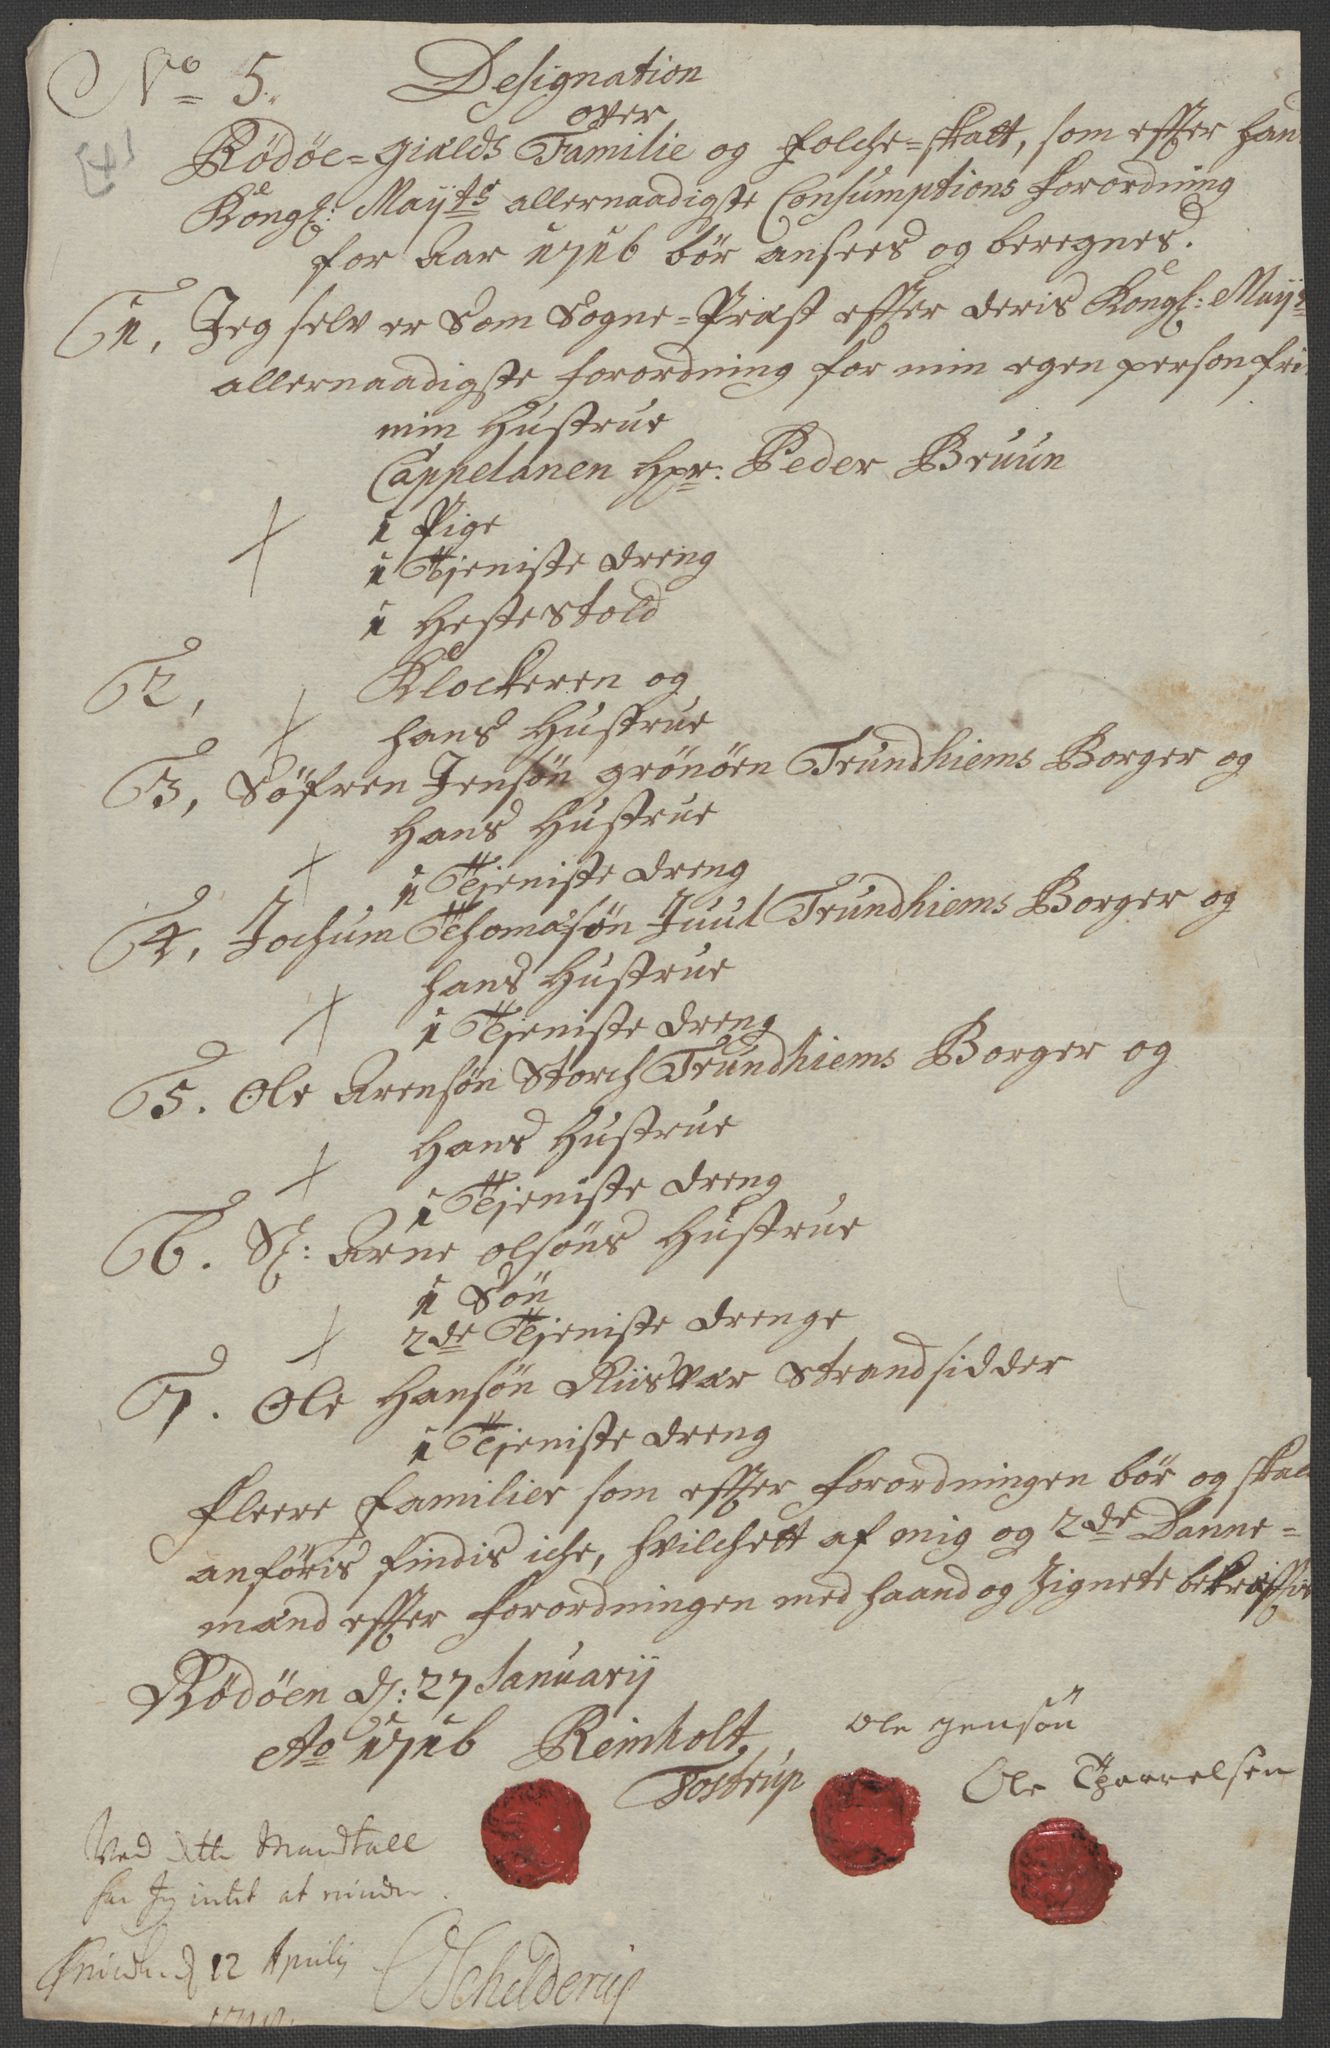 No 5.
Designation
over
Rödöe=gields Familie og folche=skatt, som effter hans
Kongl: Mayts allernaadigste Consumptions forordning
for Aar 1716 bör ansees og beregnes.
1, Jeg selv er Som Sogne=Præst effter deris Kongl: Mayts
allernaadigste forordning for min egen person fri
min Hustrue
Cappelanen Hr: Peder Bruun
1 Pige
1 Tjeniste dreng
1 Hestestold
2, Klockeren og
hans Hustrue
3, Söfren Jensön grönöen Trundhiems Borger og
Hans Hustrue
1 Tjeniste dreng
4, Jochum Thomasön Juul Trundhiems Borger og
hans Hustrue
1 Tjeniste dreng
5. Ole Arensön Storch Trundhiems Borger og
Hans Hustrue
1 Tjeniste dreng
6. Sl: Arne olsöns Hustrue
1 Sön
2de Tjeniste drenge
7. Ole Hansön Riisvær Strandsidder
1 Tjeniste dreng
fleere familier som effter forordningen bör og skall
anföris findis iche, hvilchett af mig og 2de Danne=
mænd effter forordningen med haand og Zignete bekræfftis
Rödöen d: 27 Januarij
Ao 1716 Reinholt
Tostrup
Ole Jensön
Ole Thorrelsen
Ved dette Mandtall
har Jeg intet at minde.
12 Aprilij
Schelderup